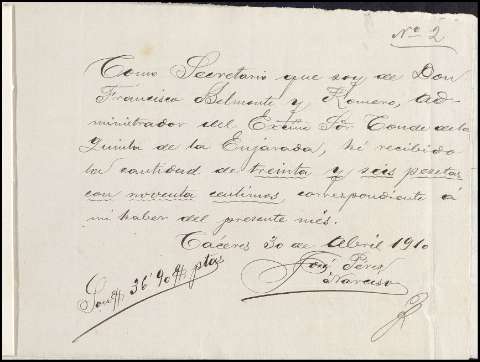 Nº 2
Como Secretario que soy de Don
Francisco Belmonte y Romero, ad-
ministrador del Excmo Sõr Conde de la
Quinta de la Enjarada, hé recibido
la cantidad de treinta y seis pesetas
con noventa centimos, correspondiente á
mi haber del presente més.
Cáceres 30 de Abril 1910
José Perez
Narciso
Son 36'90 ptas